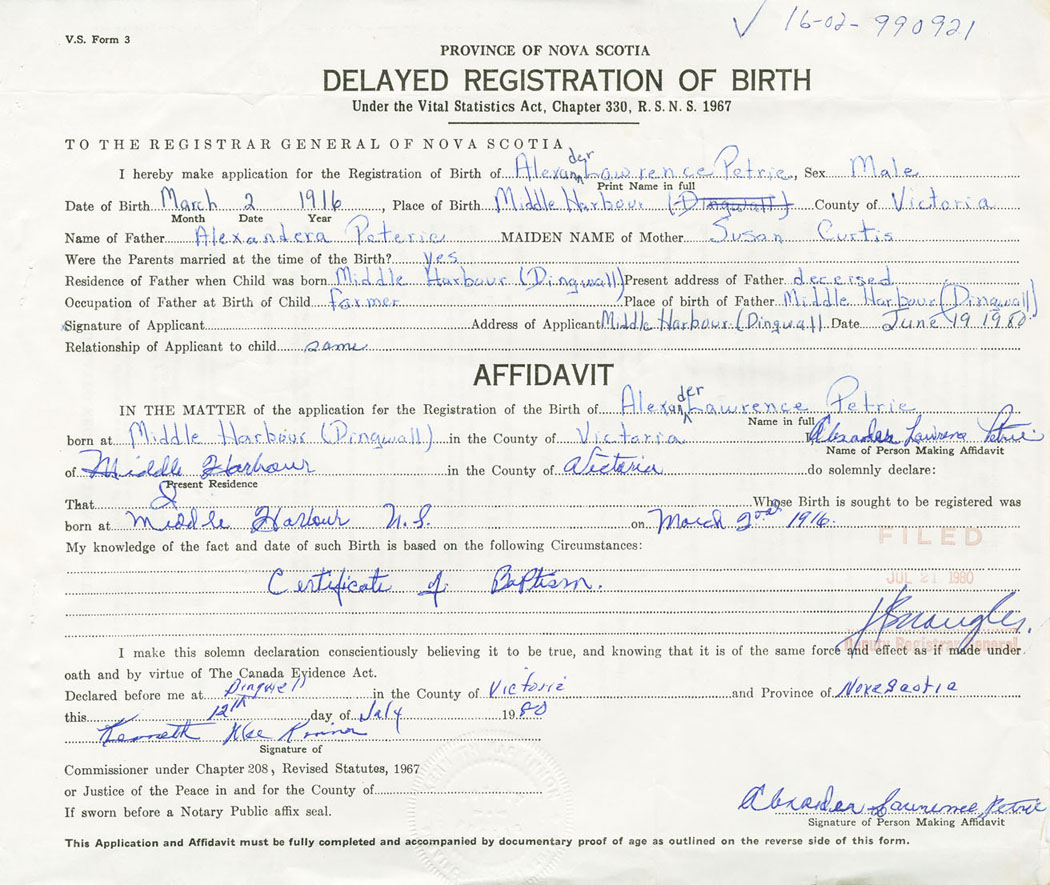 V.S. Form 3
✓ 16-02-990921
PROVINCE OF NOVA SCOTIA
DELAYED REGISTRATION OF BIRTH
Under the Vital Statistics Act, Chapter 330, R.S.N.S. 1967
TO THE REGISTRAR GENERAL OF NOVA SCOTIA
I hereby make application for the Registration of Birth of Alexander Lawrence Petrie, Sex Male
Print Name in full
Date of Birth March 2 1916, Place of Birth Middle Harbour (Dingwall) County of Victoria
Month Date Year
Name of Father Alexandera Peterie MAIDEN NAME of Mother Susan Curtis
Were the Parents married at the time of the Birth? yes
Residence of Father when Child was born Middle Harbour (Dingwall) Present address of Father decerised
Occupation of Father at Birth of Child farmer Place of birth of Father Middle Harbour (Dingwall)
Signature of Applicant Address of Applicant Middle Harbour (Dingwall) Date June 19 1980
Relationship of Applicant to child same
AFFIDAVIT
IN THE MATTER of the application for the Registration of the Birth of Alexander Lawrence Petrie
Name in full
born at Middle Harbour (Dingwall) in the County of Victoria Alexander Lawrence Petrie
Name of Person Making Affidavit
of Middle Harbour in the County of Victoria do solemnly declare:
Present Residence
That I Whose Birth is sought to be registered was
born at Middle Harbour N.S. on March 2nd 1916.
My knowledge of the fact and date of such Birth is based on the following Circumstances:
FILED
Certificate of Baptism.
JUL 21 1980
Deputy Registrar General
I make this solemn declaration conscientiously believing it to be true, and knowing that it is of the same force and effect as if made under
oath and by virtue of The Canada Evidence Act.
Declared before me at Dingwell in the County of Victoria and Province of Nova Scotia
this 12th day of July 1980
Kenneth
Signature of
Commissioner under Chapter 208, Revised Statutes, 1967
or Justice of the Peace in and for the County of
If sworn before a Notary Public affix seal.
Alexander Lawrence Petrie
Signature of Person Making Affidavit
This Application and Affidavit must be fully completed and accompanied by documentary proof of age as outlined on the reverse side of this form.